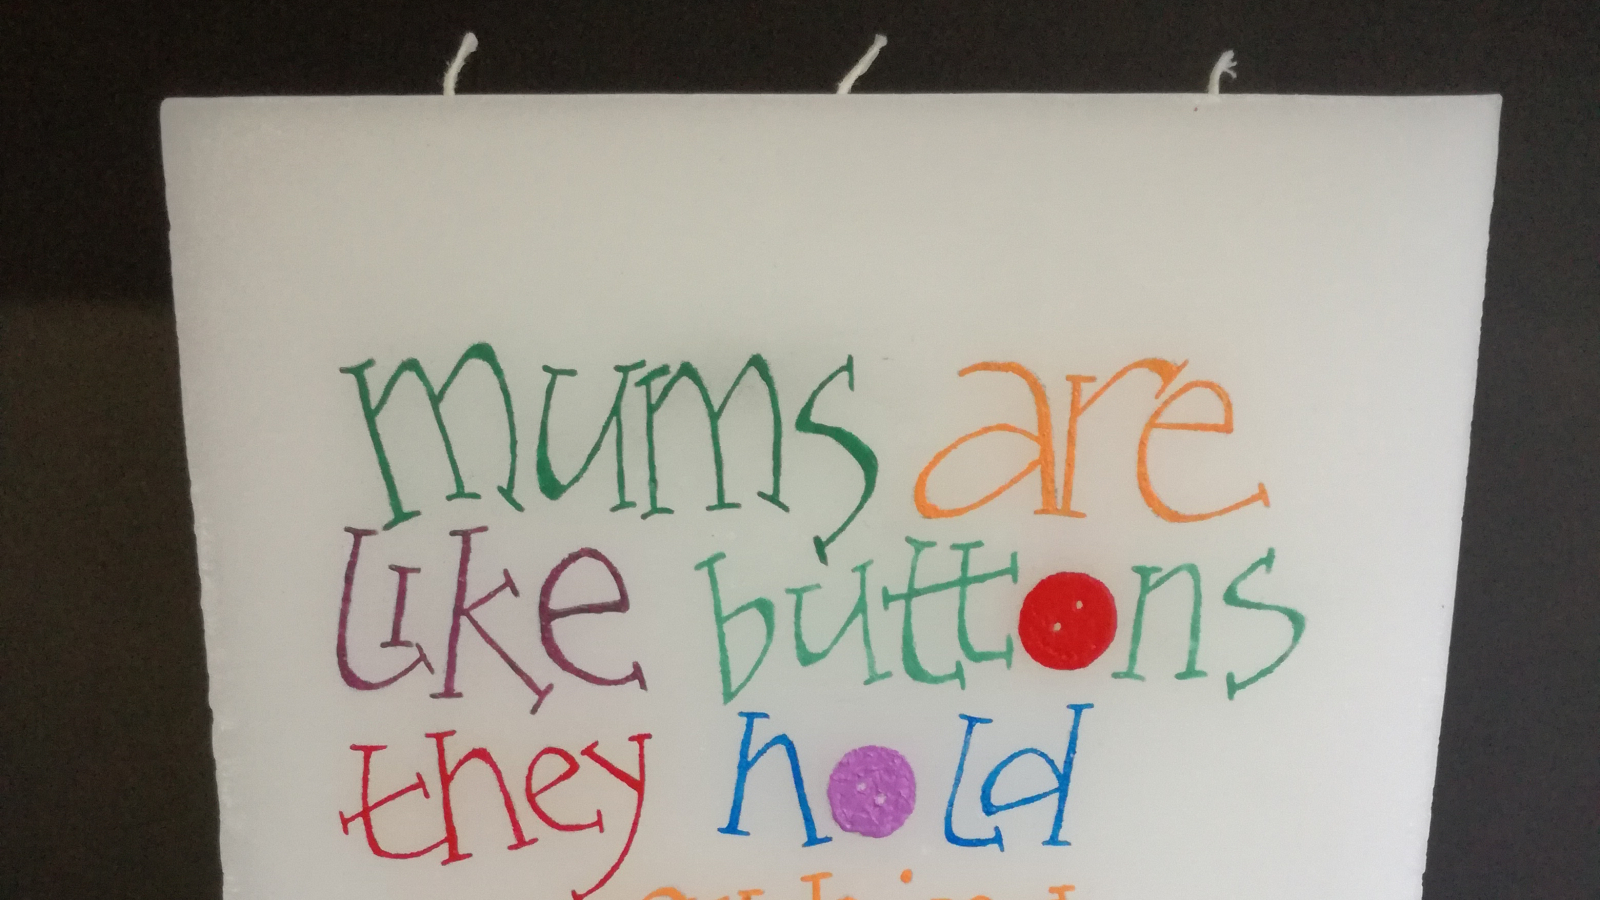 mums are
like buttons
they hold